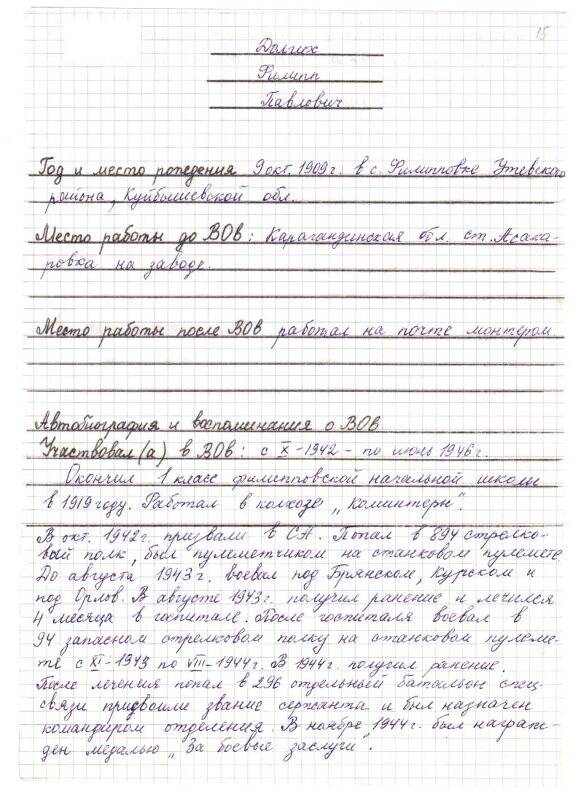 15
Долгих
Филипп
Павлович
Год и место рождения 9 окт. 1909 г. в с. Филипповка Утевского
района, Куйбышевской обл.
Место работы до ВОв: Карагандинская обл. ст. Асака-
ровка на заводе.
Место работы после ВОв работал на почте монтером
Автобиография и воспоминания о ВОВ
Участвовал(а) в ВОв: с X-1942 - по июль 1946 г.
Окончил 1 класс филипповской начальной школы
в 1919 году. Работал в колхозе „Коминтерн".
В окт. 1942 г. призвали в СА. Попал в 894 стрелко-
вый полк, был пулеметчиком на станковом пулемете.
До августа 1943 г. воевал под Брянском, Курском и
под Орлов. В августе 1943 г. получил ранение и лечился
4 месяца в гапитале. После госпиталя воевал в
94 запасном стрелковом полку на станковом пулеме-
те с XI-1943 по VIII-1944 г. В 1944 г. получил ранение.
После лечения попал в 296 отдельный батальон спец.
связи присвоили звание сержанта и был назначен
командиром отделения. В ноябре 1944 г. был награж-
ден медалью „За боевые заслуги".